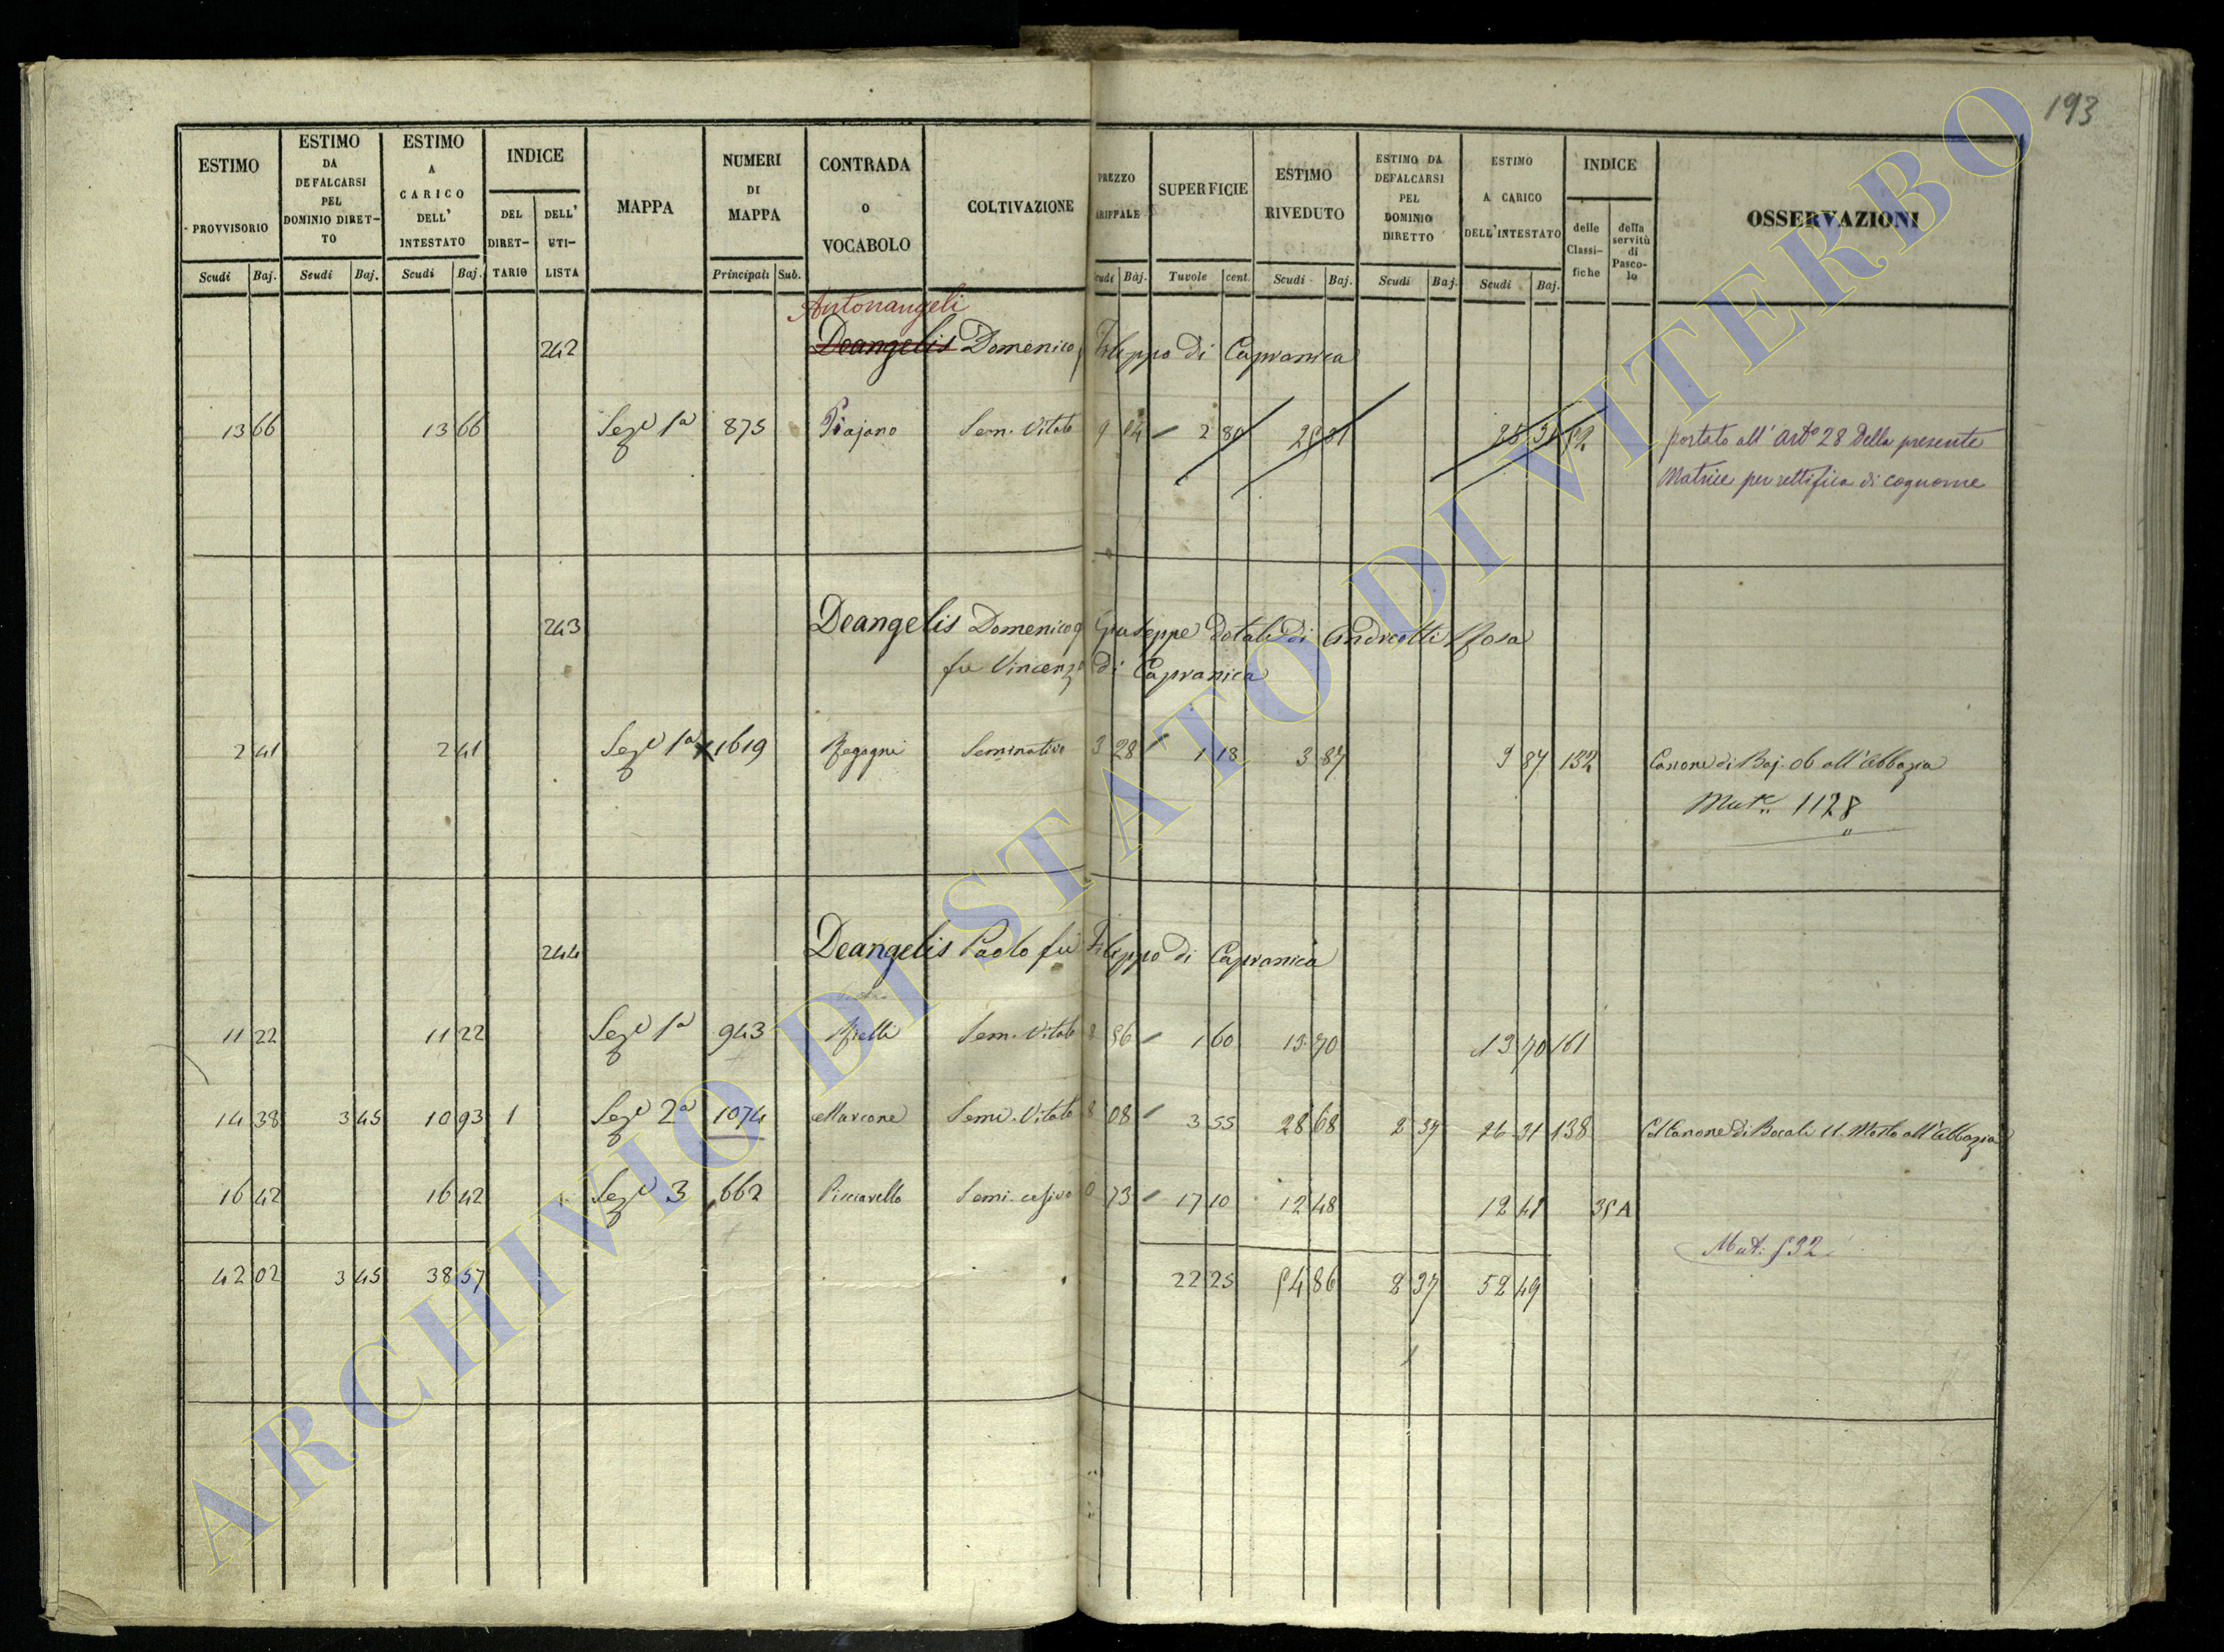 193
ESTIMO PROVVISORIO Scudi Baj.
ESTIMO DA DEFALCARSI PEL DOMINIO DIRET-TO Scudi Baj.
ESTIMO A CARICO DELL' INTESTATO Scudi Baj.
INDICE DEL DIRET-TARIO DELL' UTI-LISTA
MAPPA
NUMERI DI MAPPA Principali Sub.
CONTRADA O VOCABOLO
COLTIVAZIONE
PREZZO ARIFFALE cudi Baj.
SUPERFICIE Tavole cent.
ESTIMO RIVEDUTO Scudi Baj.
ESTIMO DA DEFALCARSI PEL DOMINIO DIRETTO Scudi Baj.
ESTIMO A CARICO DELL'INTESTATO Scudi Baj.
INDICE delle Classi-fiche della servitù di Pasco-lo
OSSERVAZIONI
Antonangeli
242 Deangelis Domenico q Filippo di Capranica
13 66 13 66 Seze 1a 875 Piajano Sem. Vitato 9 2 80 portato all' Arto 28 della presente
Matrice per rettifica di cognome
243 Deangelis Domenico q Giuseppe dotali di Andreotti Rosa
fu Vincenzo di Capranica
2 41 2 41 Seze 1a 1619 Regagni Seminativo 3 28 1 18 3 87 3 87 132 Canone di Baj. 06 all'Abbazia
Mute 1128
244 Deangelis Paolo fu Filippo di Capranica
11 22 11 22 Seze 1a 943 Rielli Sem. Vitato 8 56 1 60 13 70 13 70 161
14 38 3 45 10 93 1 Seze 2a 1074 Marcone Semi. Vitato 8 08 3 55 28 68 2 37 26 31 138 Col Canone di Bocali 11. Mosto all'Abbazia
16 42 16 42 Seze 3 662 Picciarello Semi. cesivo 0 73 17 10 12 48 12 48 35 A
Mut: 532
42 02 3 45 38 57 22 25 54 86 2 37 52 49
ARCHIVIO DI STATO DI VITERBO